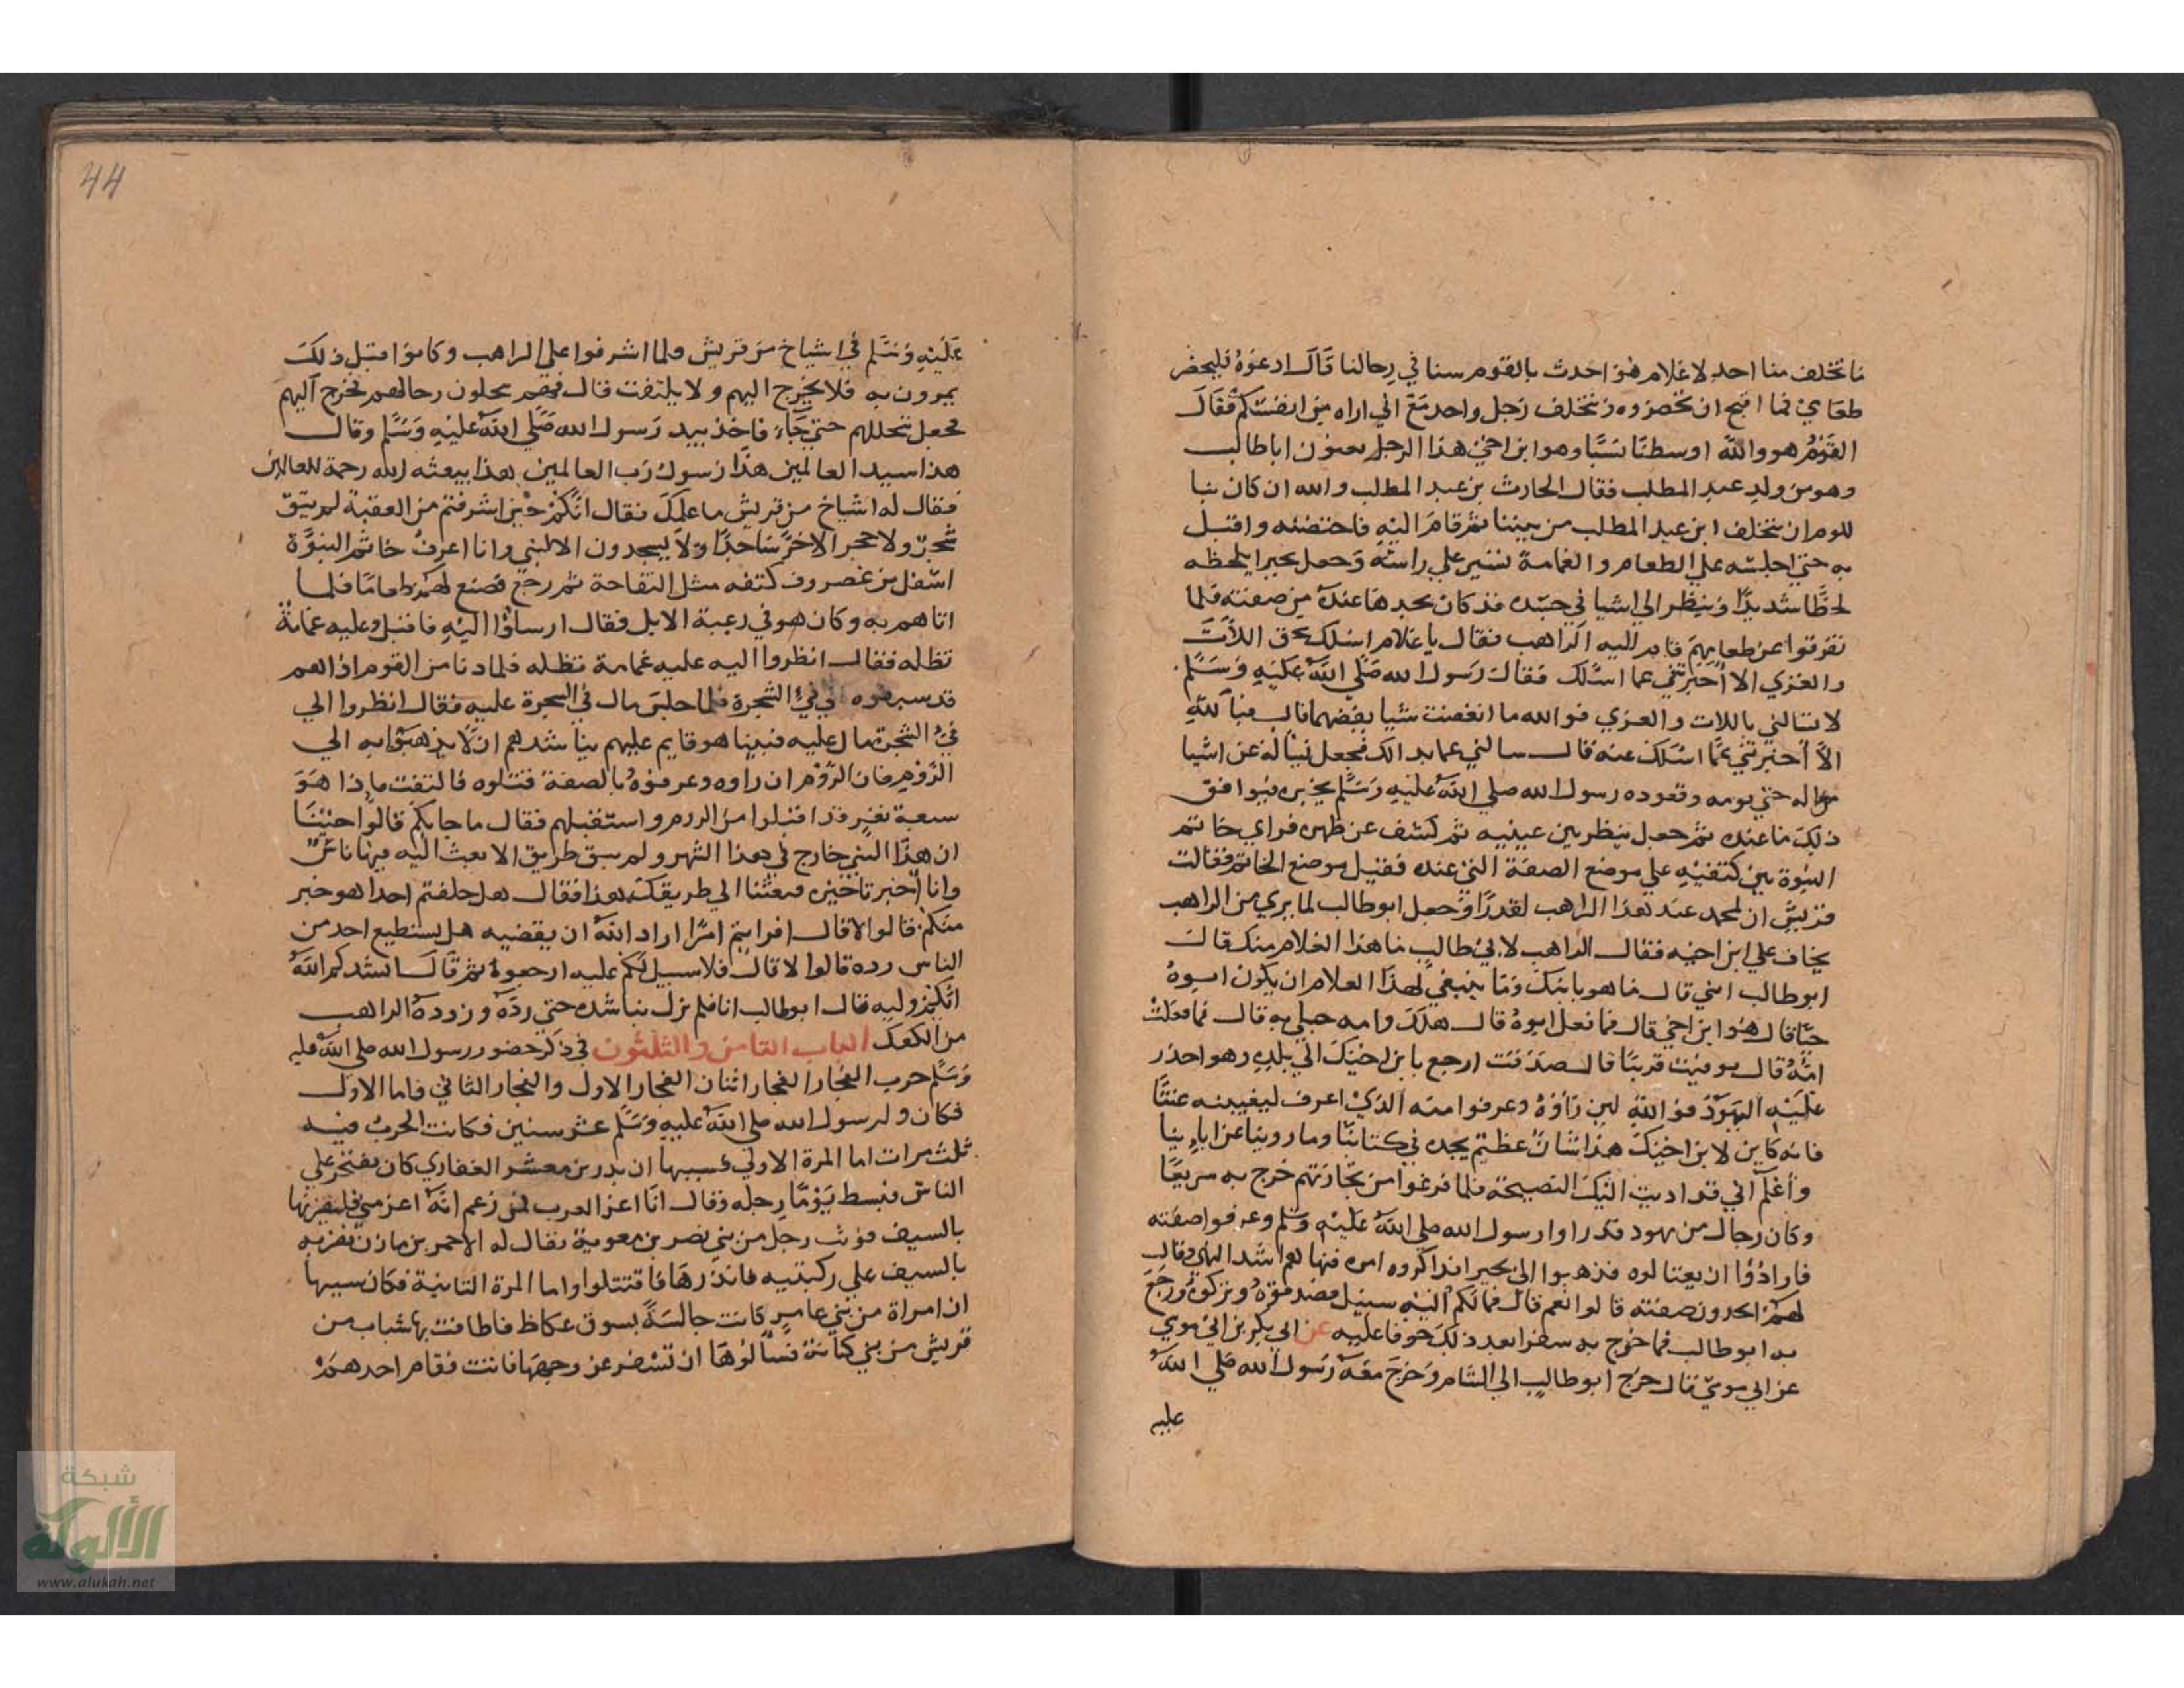 ما تخلف منا احد الا غلام هو احدث بالقوم سنا في رحالنا قال ادعوه فليحضر
طعامي فما اقبح ان تحضروه ويتخلف رجل واحد مع اني اراه من انفسكم فقال
القوم هو والله اوسطنا نسبا وهو ابن اخي هذا الرجل يعنون ابا طالب
وهو من ولد عبد المطلب فقال الحارث بن عبد المطلب والله ان كان بنا
للوم ان يتخلف ابن عبد المطلب من بيننا ثم قام اليه فاحتضنه واقبل
به حتي اجلسه علي الطعام والغمامة تسير علي راسه وجعل بحيرا يلحظه
لحظا شديدا وينظر الي اشيا في جسده قد كان يجدها عنده من صفته فلما
تفرقوا عن طعامهم قام اليه الراهب فقال يا غلام اسلك بحق اللات
والعزي الا اخبرتني عما اسئلك فقال رسول الله صلي الله عليه وسلم
لا تسالني باللات والعزي فوالله ما ابغضت شيا بغضهما قال فبالله
الا اخبرتني عما اسئلك عنه قال سالني عما بدا لك فجعل يساله عن اشيا
من حاله حتي نومه وقعوده رسول الله صلي الله عليه وسلم يخبره فيوافق
ذلك ما عنده ثم جعل ينظر بين عينيه ثم كشف عن ظهره فراي خاتم
النبوة بين كتفيه علي موضع الصفة التي عنده فقبل موضع الخاتم فقالت
قريش ان لمحمد عند هذا الراهب لقدرا وجعل ابو طالب لما يري من الراهب
يخاف علي ابن اخيه فقال الراهب لابي طالب ما هذا الغلام منك قال
ابو طالب ابني قال ما هو بابنك وما ينبغي لهذا الغلام ان يكون ابوه
حيا قال هو ابن اخي قال فما فعل ابوه قال هلك وامه حبلي به قال فما فعلت
امه قال توفيت قريبا قال صدقت ارجع بابن اخيك الي بلده وهو احذر
عليه اليهود فوالله لين راوه وعرفوا منه الذي اعرف ليبغينه عنتا
فانه كاين لابن اخيك هذا شان عظيم يجده في كتابنا وما روينا عن اباينا
واعلم اني قد اديت اليك النصيحة فلما فرغوا من تجارتهم خرج به سريعا
وكان رجال من يهود قد راوا رسول الله صلي الله عليه وسلم وعرفوا صفته
فارادوا ان يغتالوه فذهبوا الي بحيرا فذاكروه امره فنهاهم اشد النهي وقال
لهم اتجدون صفته قالوا نعم قال فما لكم اليه سبيل فصدقوه وتركوه ورجع
به ابو طالب فما خرج به سفرا بعد ذلك خوفا عليه عن ابي بكر بن ابي موسي
عن ابي موسي قال خرج ابو طالب الي الشام وخرج معه رسول الله صلي الله
عليه
44
عليه وسلم في اشياخ من قريش فلما اشرفوا علي الراهب وكانوا قبل ذلك
يمرون به فلا يخرج اليهم ولا يلتفت قال فهم يحلون رحالهم فخرج اليهم
فجعل يتخللهم حتي جاء فاخذ بيد رسول الله صلي الله عليه وسلم وقال
هذا سيد العالمين هذا رسول رب العالمين هذا يبعثه الله رحمة للعالمين
فقال له اشياخ من قريش ما علمك فقال انكم حين اشرفتم من العقبة لم يبق
شجر ولا حجر الا خر ساجدا ولا يسجدون الا لنبي وانا اعرف خاتم النبوة
اسفل من غضروف كتفه مثل التفاحة ثم رجع فصنع لهم طعاما فلما
اتاهم به وكان هو في رعية الابل فقال ارسلوا اليه فاقبل وعليه غمامة
تظله فقال انظروا اليه عليه غمامة تظله فلما دنا من القوم اذا هم
قد سبقوه الي في الشجرة فلما جلس مال في الشجرة عليه فقال انظروا الي
في الشجرة مال عليه فبينا هو قايم عليهم يناشدهم ان لا يذهبوا به الي
الروم فان الروم ان راوه وعرفوه بالصفة قتلوه فالتفت فاذا هو
سبعة نفر قد اقبلوا من الروم واستقبلهم فقال ما جا بكم قالوا جينا
ان هذا النبي خارج في هذا الشهر ولم يبق طريق الا بعث اليه فيها ناس
وانا اخبرنا خبره فبعثنا الي طريقك هذا فقال هل خلفتم احدا هو خير
منكم قالوا لا قال افرايتم امرا اراد الله ان يقضيه هل يستطيع احد من
الناس رده قالوا لا قال فلا سبيل لكم عليه ارجعوا ثم قال انشدكم الله
ايكم وليه قال ابو طالب انا فلم يزل يناشده حتي رده وزوده الراهب
من الكعك الباب الثامن والثلثون في ذكر حضور رسول الله صلي الله عليه
وسلم حرب الفجار الفجار اثنان الفجار الاول والفجار الثاني فاما الاول
فكان ولرسول الله صلي الله عليه وسلم عشر سنين فكانت الحرب فيه
ثلث مرات اما المرة الاولي فسببها ان بدر بن معشر الغفاري كان يفتخر علي
الناس فبسط يوما رجله وقال انا اعز العرب فمن زعم انه اعز مني فليضربها
بالسيف فوثب رجل من بني نصر بن معوية يقال له الاحمر بن مازن فضربه
بالسيف علي ركبتيه فاندرها فاقتتلوا واما المرة الثانية فكان سببها
ان امراة من بني عامر كانت جالسة بسوق عكاظ فاطافت بها شباب من
قريش من بني كنانة فسالوها ان تسفر عن وجهها فابت فقام احدهم
شبكة
الألوكة
www.alukah.net